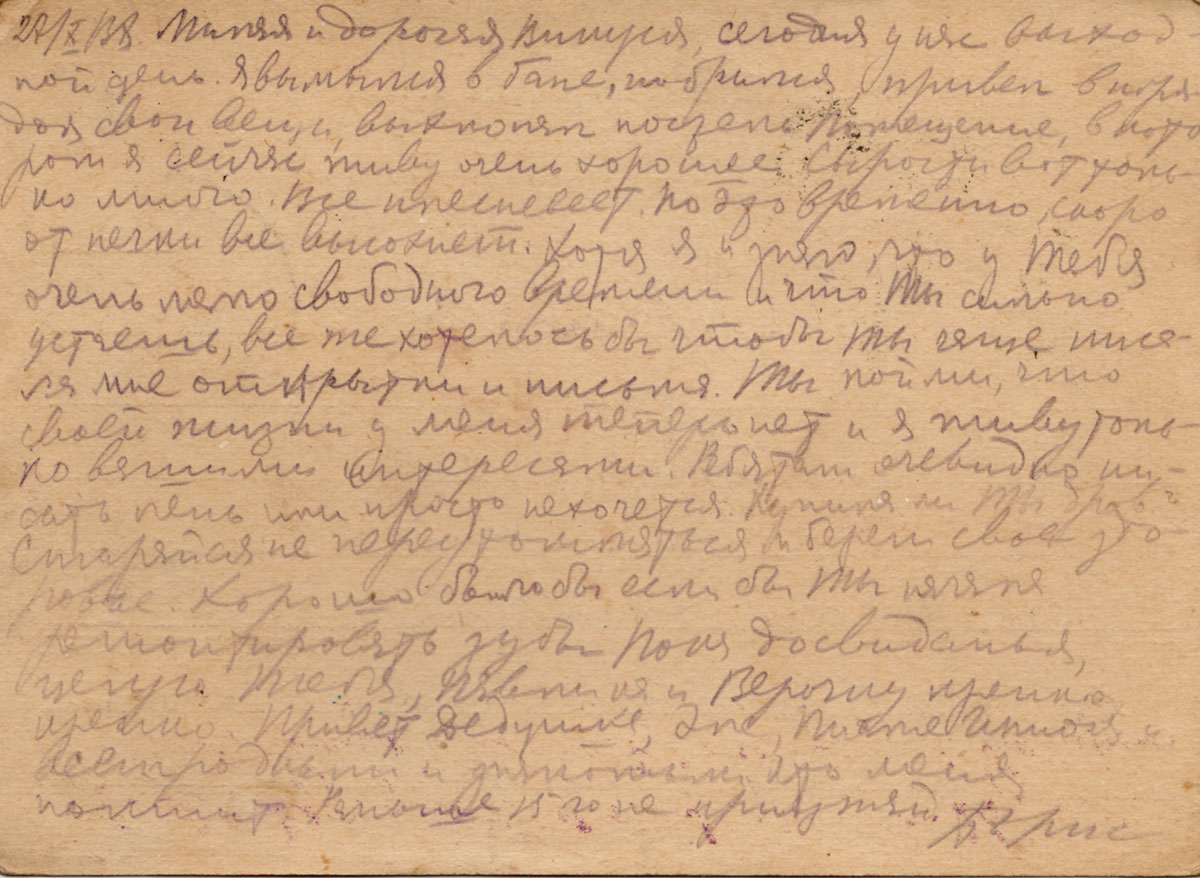 Милая и дорогая Винуся, сегодня у нас выход-
ной день. Я вымылся в бане, побрился, привел в поря-
док свои вещи, выхлопал постель. Помещение, в кото
ром я сейчас живу очень хорошее. Сырости вот толь-
ко много. Все плесневеет. Но это временно, скоро
от печки все высохнет. Хотя я и знаю, что у тебя
очень мало свободного времени и что ты сильно
устаешь, все же хотелось бы чтобы ты чаще писа-
ла мне открытки и письма. Ты пойми, что
своей жизни у меня теперь нет и я живу толь-
ко вашими интересами. Ребятам очевидно пи-
сать лень или просто не хочется. Купила ли ты дров?
Старайся не переутомляться и береги свое здо-
ровье. Хорошо было бы если бы ты начала
ремонтировать зубы. Пока досвиданья,
целую тебя, и Верочку крепко
крепко. Привет дедушке,
всем родным и знакомым кто меня
помнит. Раньше 15го не приезжай. Борис